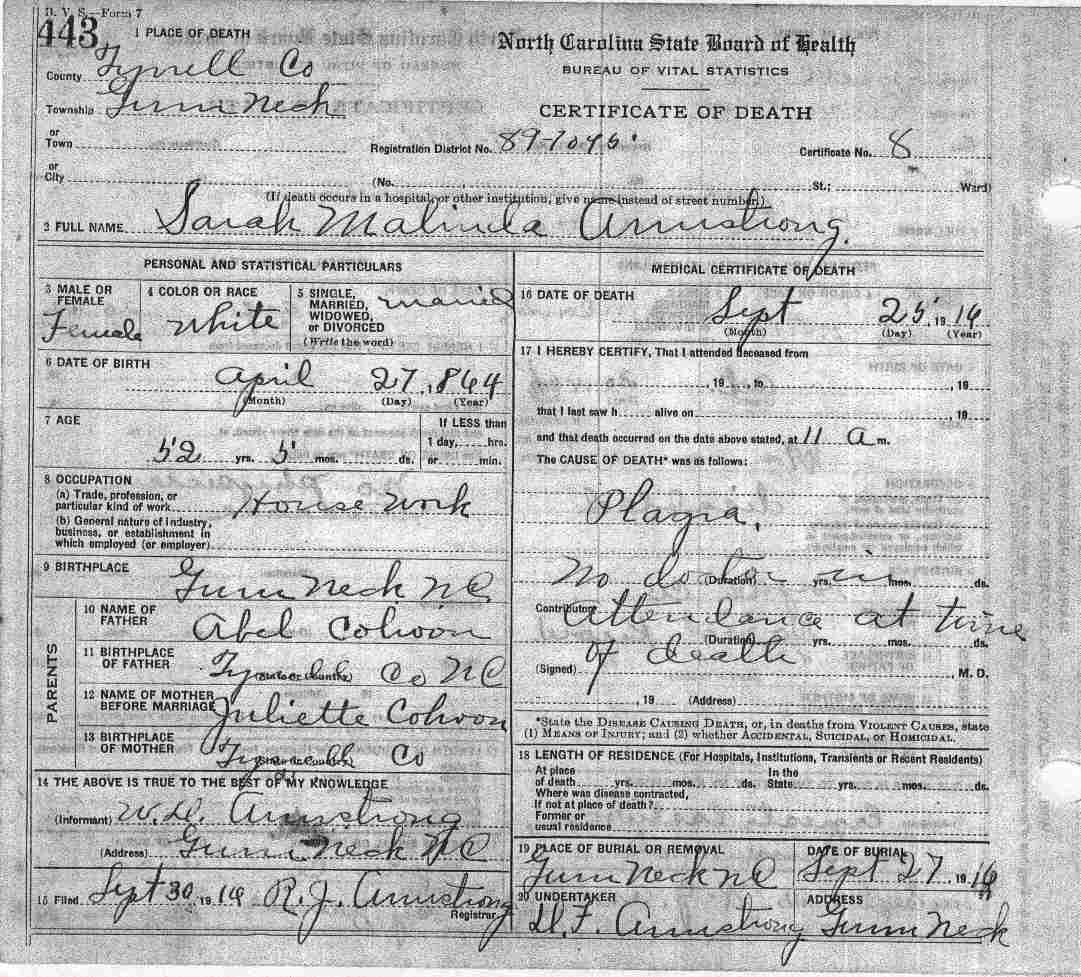 D. V. S.—Form 7
443
1 PLACE OF DEATH
County Tyrrell Co
Township Gum Neck
or
Town
or
City
North Carolina State Board of Health
BUREAU OF VITAL STATISTICS
CERTIFICATE OF DEATH
Registration District No. 89-1045 Certificate No. 8
(No. , St.; Ward)
(If death occurs in a hospital or other institution, give name instead of street number.)
2 FULL NAME Sarah Malinda Armstrong.
PERSONAL AND STATISTICAL PARTICULARS
3 MALE OR FEMALE Female
4 COLOR OR RACE White
5 SINGLE, MARRIED, WIDOWED, or DIVORCED married
(Write the word)
6 DATE OF BIRTH
April 27, 1864
(Month) (Day) (Year)
7 AGE
If LESS than
52 yrs. 5 mos. ds. 1 day, hrs. or min.
8 OCCUPATION
(a) Trade, profession, or
particular kind of work House Work
(b) General nature of industry,
business, or establishment in
which employed (or employer)
9 BIRTHPLACE
Gum Neck NC
PARENTS
10 NAME OF FATHER
Abel Cohoon
11 BIRTHPLACE OF FATHER
(State or Country) Co NC
12 NAME OF MOTHER BEFORE MARRIAGE
Juliette Cohoon
13 BIRTHPLACE OF MOTHER
(State or Country) Tyrrell Co
14 THE ABOVE IS TRUE TO THE BEST OF MY KNOWLEDGE
(Informant) W.D. Armstrong
(Address) Gum Neck NC
15 Filed Sept 30 1916 R.J. Armstrong
Registrar
MEDICAL CERTIFICATE OF DEATH
16 DATE OF DEATH
Sept 25, 1916
(Month) (Day) (Year)
17 I HEREBY CERTIFY, That I attended deceased from
, 19 , to , 19
that I last saw h alive on , 19
and that death occurred on the date above stated, at 11 a m.
The CAUSE OF DEATH* was as follows:
Plagra.
No doctor in
(Duration) yrs. mos. ds.
Contributory attendance at time
(Duration) yrs. mos. ds.
of death
(Signed) , M. D.
, 19 (Address)
*State the DISEASE CAUSING DEATH, or, in deaths from VIOLENT CAUSES, state
(1) MEANS OF INJURY; and (2) whether ACCIDENTAL, SUICIDAL, OR HOMICIDAL.
18 LENGTH OF RESIDENCE (For Hospitals, Institutions, Transients or Recent Residents)
At place of death yrs. mos. ds. In the State yrs. mos. ds.
Where was disease contracted,
If not at place of death?
Former or
usual residence
19 PLACE OF BURIAL OR REMOVAL
Gum Neck NC
DATE OF BURIAL
Sept 27 1916
20 UNDERTAKER
Armstrong
ADDRESS
Gum Neck